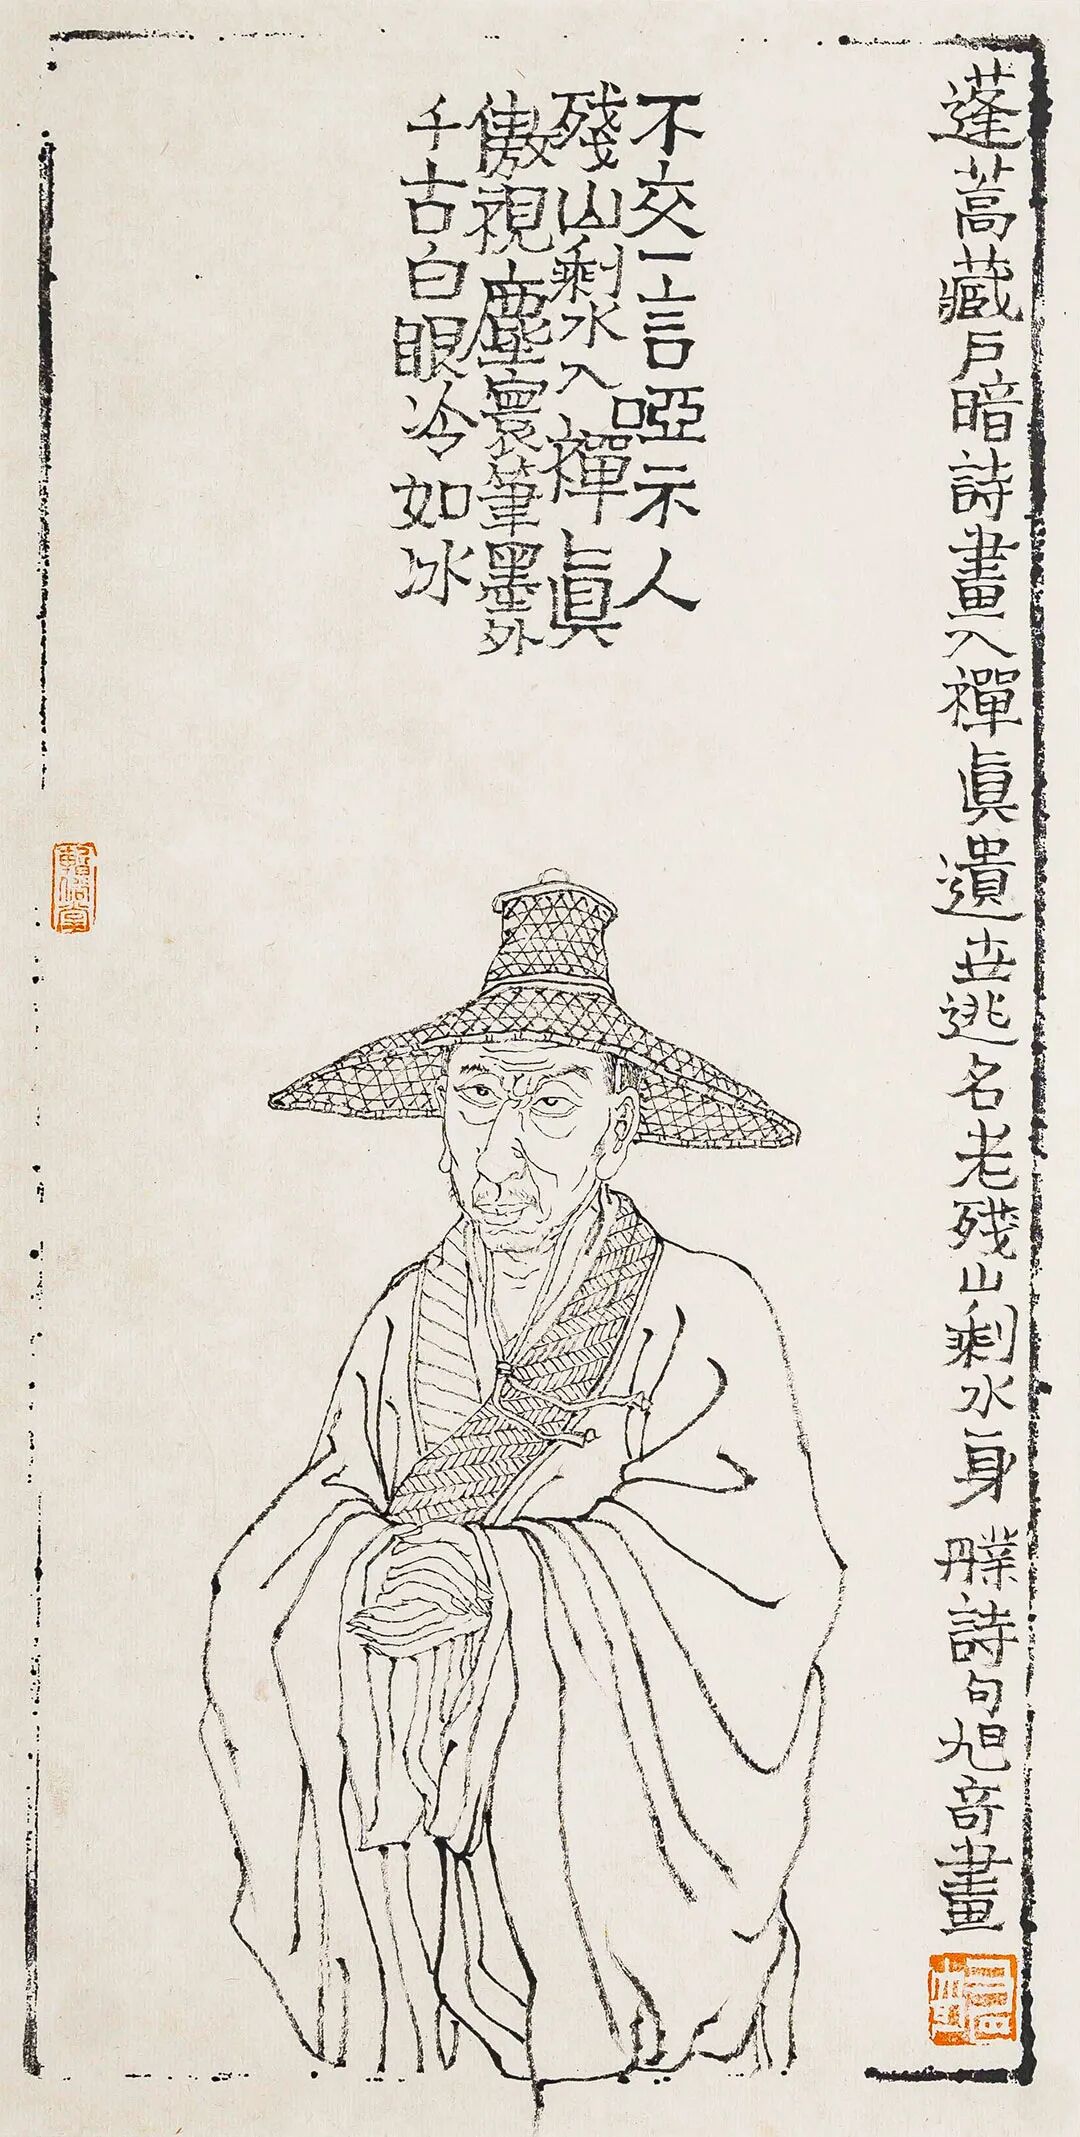 蓬蒿藏戶暗詩畫入禪眞遺世逃名老殘山剩水身 詩句旭奇畫
不交一言啞示人
殘山剩水入禪眞
傲視塵寰筆墨外
千古白眼冷如冰